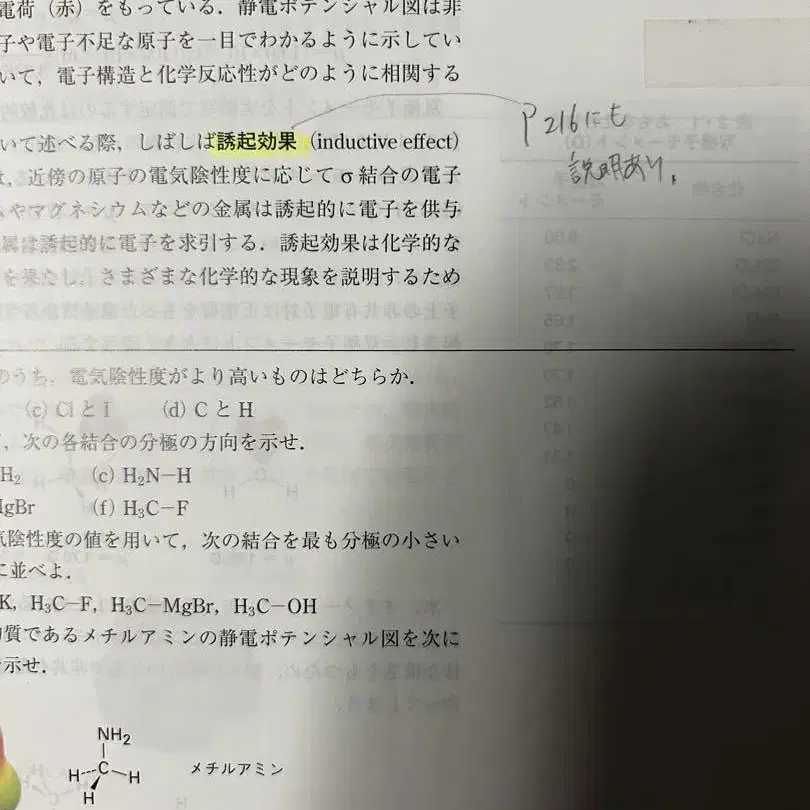 電荷（赤）をもっている．静電ポテンシャル図は非
子や電子不足な原子を一目でわかるように示してい
いて，電子構造と化学反応性がどのように相関する
いて述べる際，しばしば誘起効果（inductive effect）
は，近傍の原子の電気陰性度に応じてσ結合の電子
ムやマグネシウムなどの金属は誘起的に電子を供与
属は誘起的に電子を求引する．誘起効果は化学的な
を果たし，さまざまな化学的な現象を説明するため
P216にも
説明あり。
のうち，電気陰性度がより高いものはどちらか．
(c) ClとI (d) CとH
，次の各結合の分極の方向を示せ．
H₂ (c) H₂N−H
MgBr (f) H₃C−F
気陰性度の値を用いて，次の結合を最も分極の小さい
に並べよ．
K, H₃C−F, H₃C−MgBr, H₃C−OH
物質であるメチルアミンの静電ポテンシャル図を次に
示せ．
NH₂
H C H メチルアミン
H